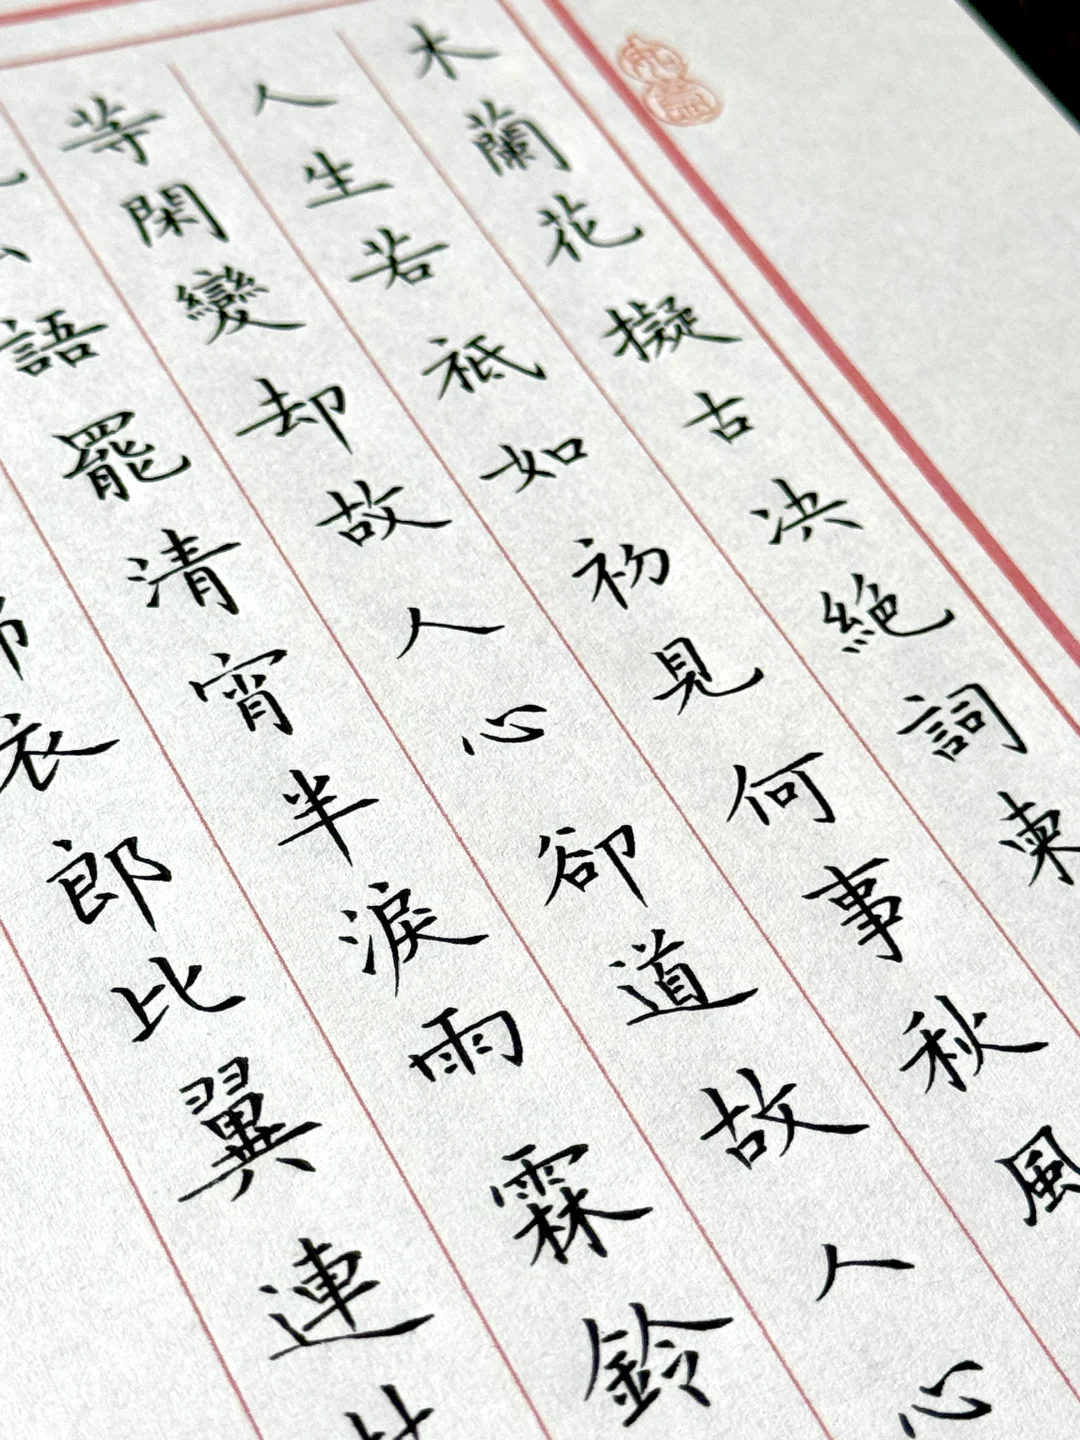 木蘭花擬古决絶詞柬
人生若祗如初見何事秋風
等閑變却故人心卻道故人心
語罷清宵半淚雨霖鈴
衣郎比翼連